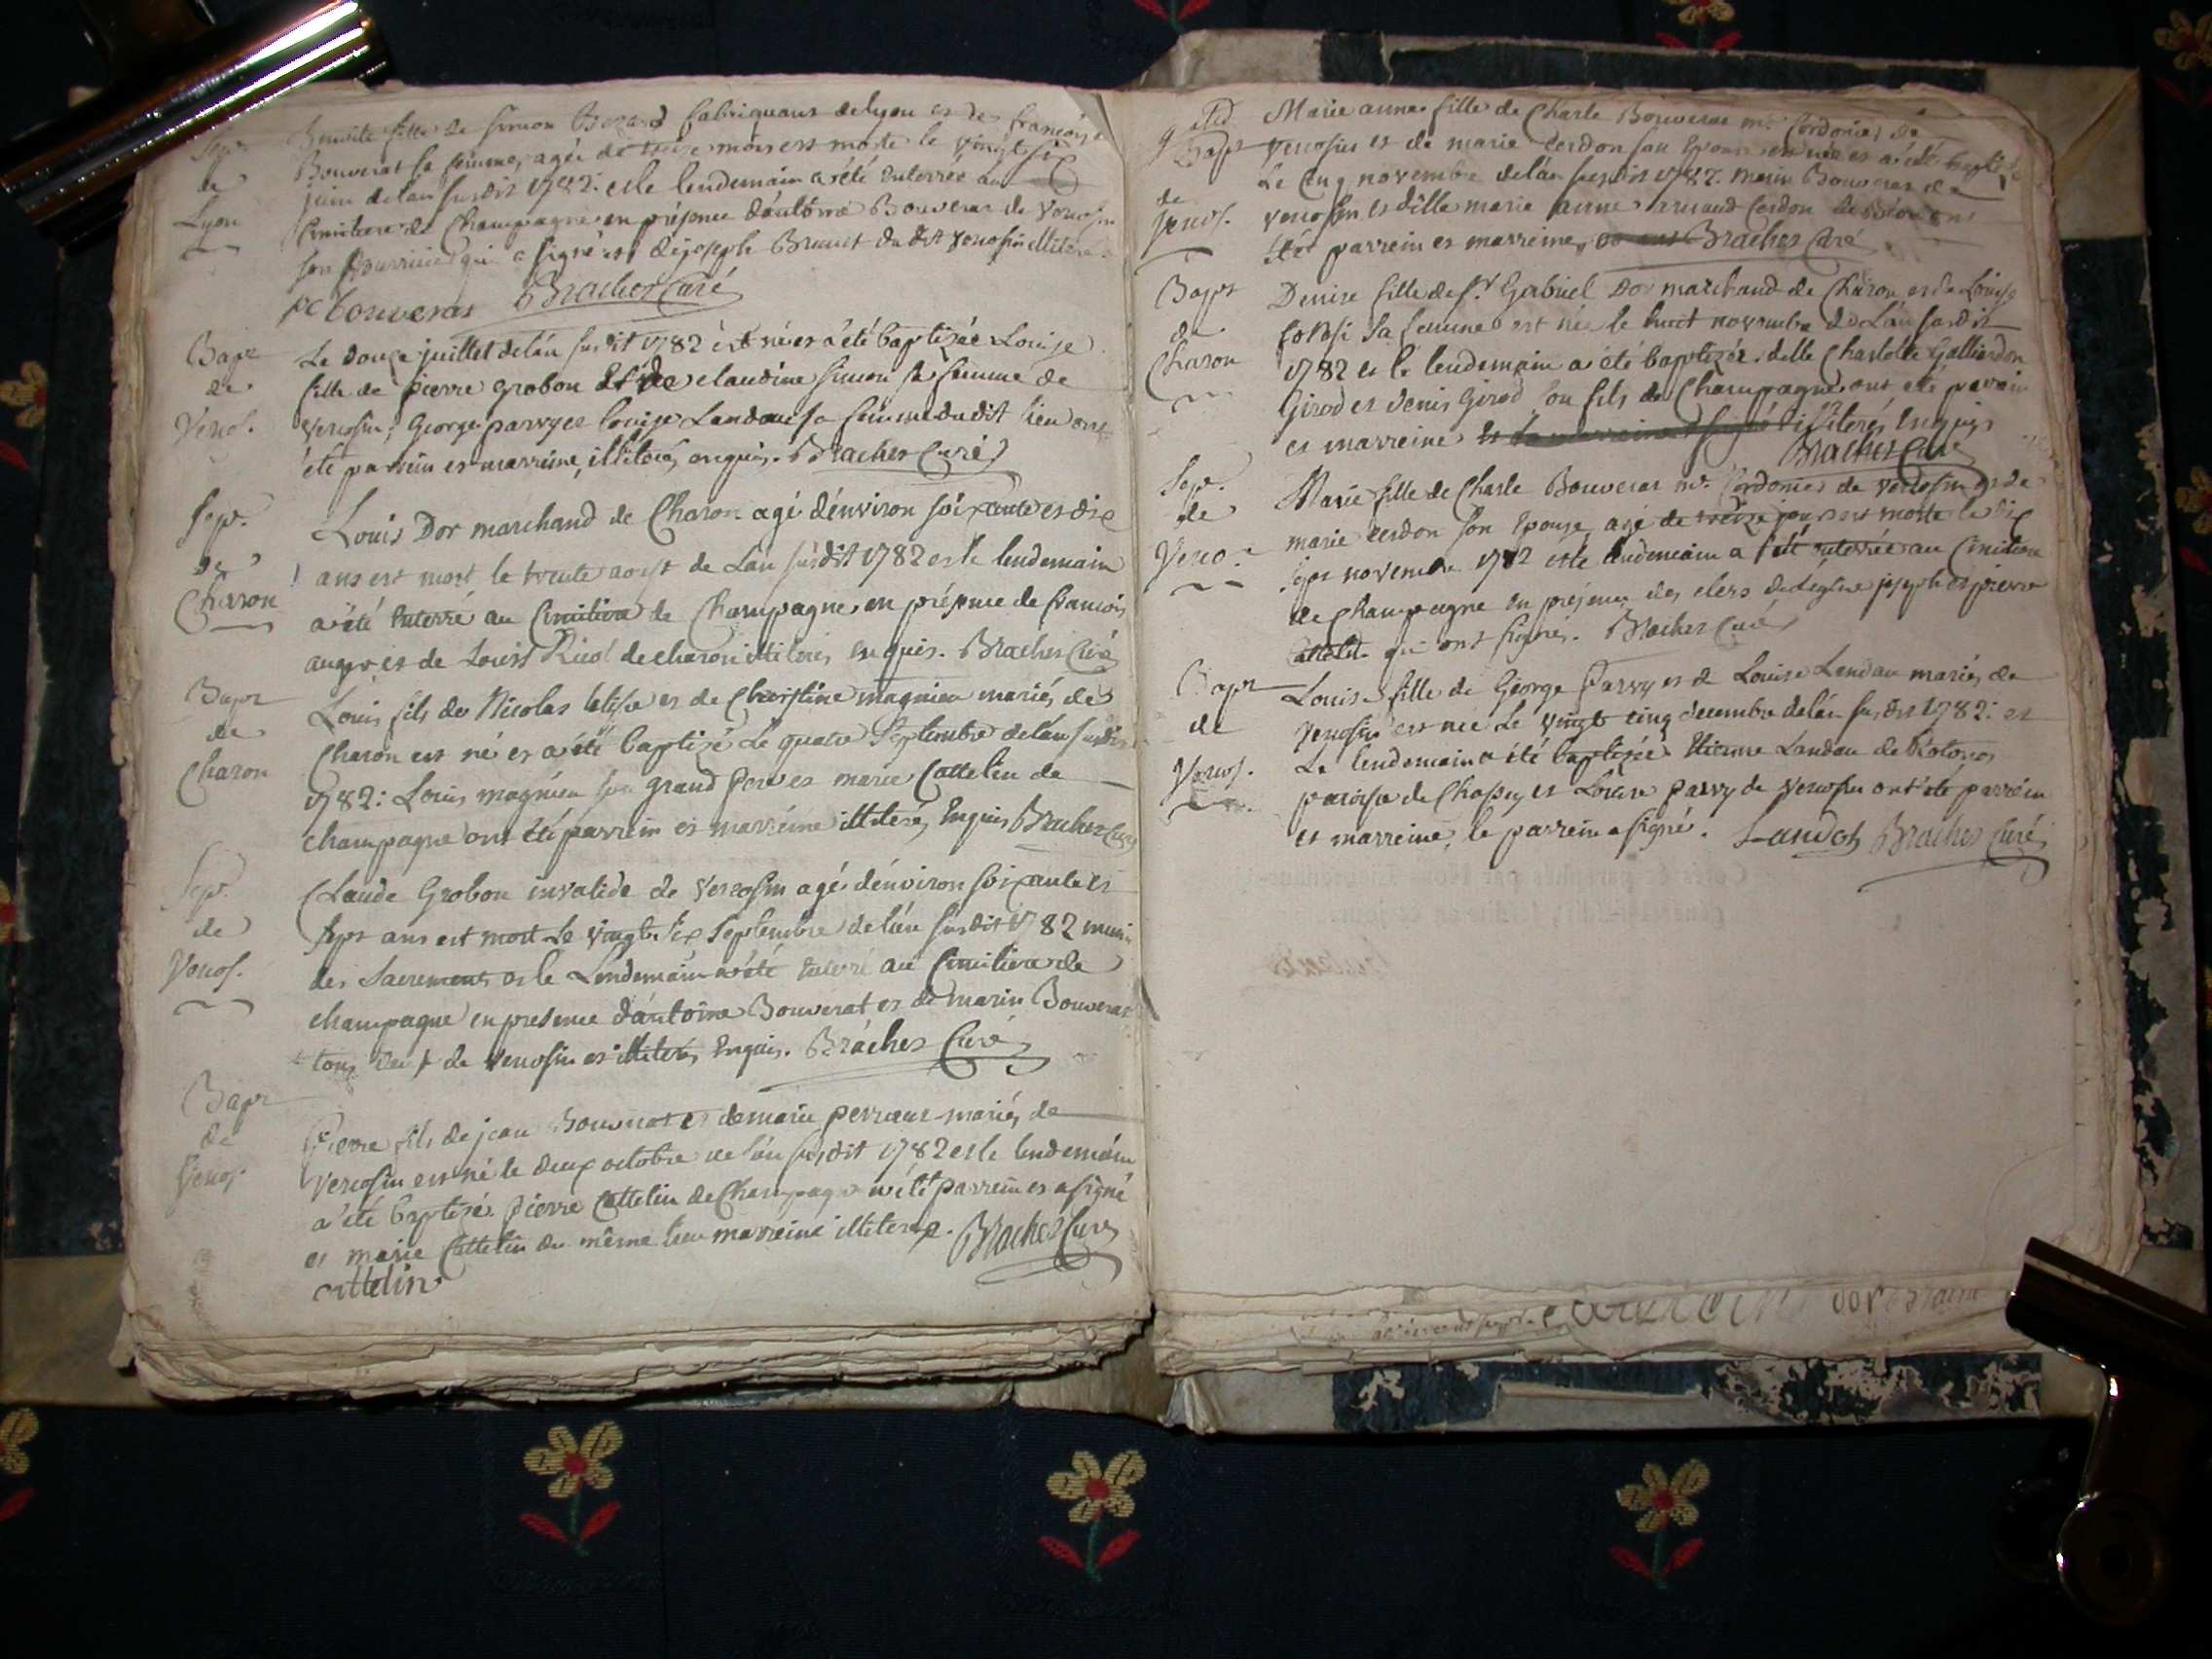 Sep.
de
Lyon
Benoite fille de Simon fabriquant de lyon et de françoise
Bouverat sa femme, agée de treize mois est morte le vingt six
juin de l'an susdit 1782. et le lendemain a été enterrée au
Cimitiere de Champagne en présence d'antoine Bouverat de Venosin
son qui a signé et de joseph Brunet du dit venosin illiteré.
Bouverat Brachet Curé
Bapt
de
Venos.
Le douze juillet de l'an susdit 1782 est née et a été baptizée Louise
fille de pierre grobon Et de claudine simon sa femme de
venosin; George parvy et louise Landau sa femme du dit lieu ont
été parrein et marreine, illiterés enquis. Brachet Curé
Sep.
de
Charon
Louis Dor marchand de Charon agé d'environ soixante et dix
ans est mort le trente aoust de l'an susdit 1782 et le lendemain
a été enterré au Cimitiere de Champagne, en présence de francois
et de Louis de charon illiterés enquis. Brachet Curé
Bapt
de
Charon
Louis fils de Nicolas et de Christine magnien mariés de
Charon est né et a été baptizé Le quatre Septembre de l'an susdit
1782: Louis magnien son grand pere et marie Cattelin de
champagne ont été parrein et marreine illiterés, Enquis Brachet Curé
Sep.
de
Venos.
Claude Grobon invalide de venosin agé d'environ soixante et
sept ans est mort Le vingt six Septembre de l'an susdit 1782 muni
des Sacrements et le Lendemain a été enterré au Cimitiere de
champagne en presence d'antoine Bouverat et de marin Bouverat
tous deux de venosin et illiterés, Enquis. Brachet Curé
Bapt
de
Venos.
Pierre fils de jean Bouverat et de marie mariés de
venosin est né le deux octobre de l'an susdit 1782 et le lendemain
a été baptizé. pierre Cattelin de Champagne a été parrein et a signé
et marie Cattelin du même lieu marreine illiterée. Brachet Curé
cattelin
Bapt
de
Venos.
Marie anne fille de Charle Bouverat me. Cordonier de
venosin et de marie Cerdon son Epouse est née et a été baptizée
Le Cinq novembre de l'an susdit 1782. marin Bouverat de
venosin et dlle marie anne Cerdon ont
été parrein et marreine, Brachet Curé
Bapt
de
Charon
Denise fille de sr. Gabriel Dor marchand de Charon et de Louise
sa femme est née le huit novembre de L'an susdit
1782 et le lendemain a été baptizée. delle Charlotte Galliardon
Girod et denis Girod son fils de Champagne ont été parrein
et marreine illiterés, Enquis
Brachet Curé
Sep.
de
Veno.
Marie fille de Charle Bouverat me. Cordonier de venosin et de
marie Cerdon son Epouse, agé de treize jours est morte le dix
sept novembre 1782 et le lendemain a été enterrée au Cimitiere
de Champagne en présence des clers de l'eglise joseph et pierre
Cattelin qui ont signés. Brachet Curé
Bapt
de
Venos.
Louise fille de George Parvy et de Louise Landau mariés de
Venosin est née Le vingt cinq decembre de l'an susdit 1782: et
Le lendemain a été baptizée Etienne Landau de
paroisse de et Loüise parvy de venosin ont été parrein
et marreine, le parrein a signé. Landoz Brachet Curé